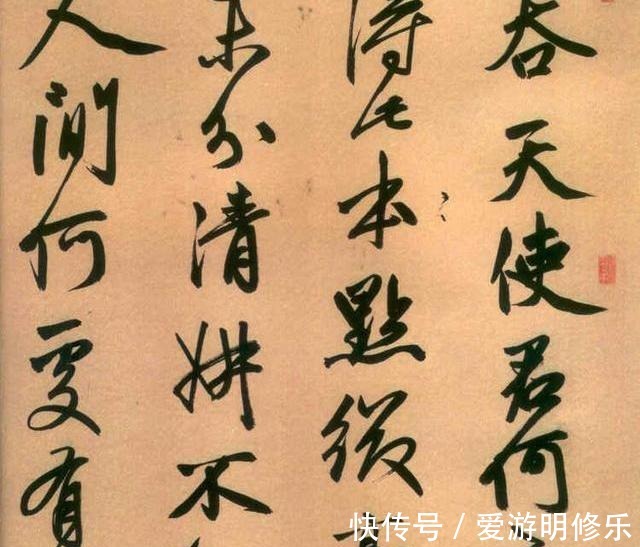 吞天使君何
得此本點綴
末分清妍不
人間何處有
快传号 / 爱游明修乐